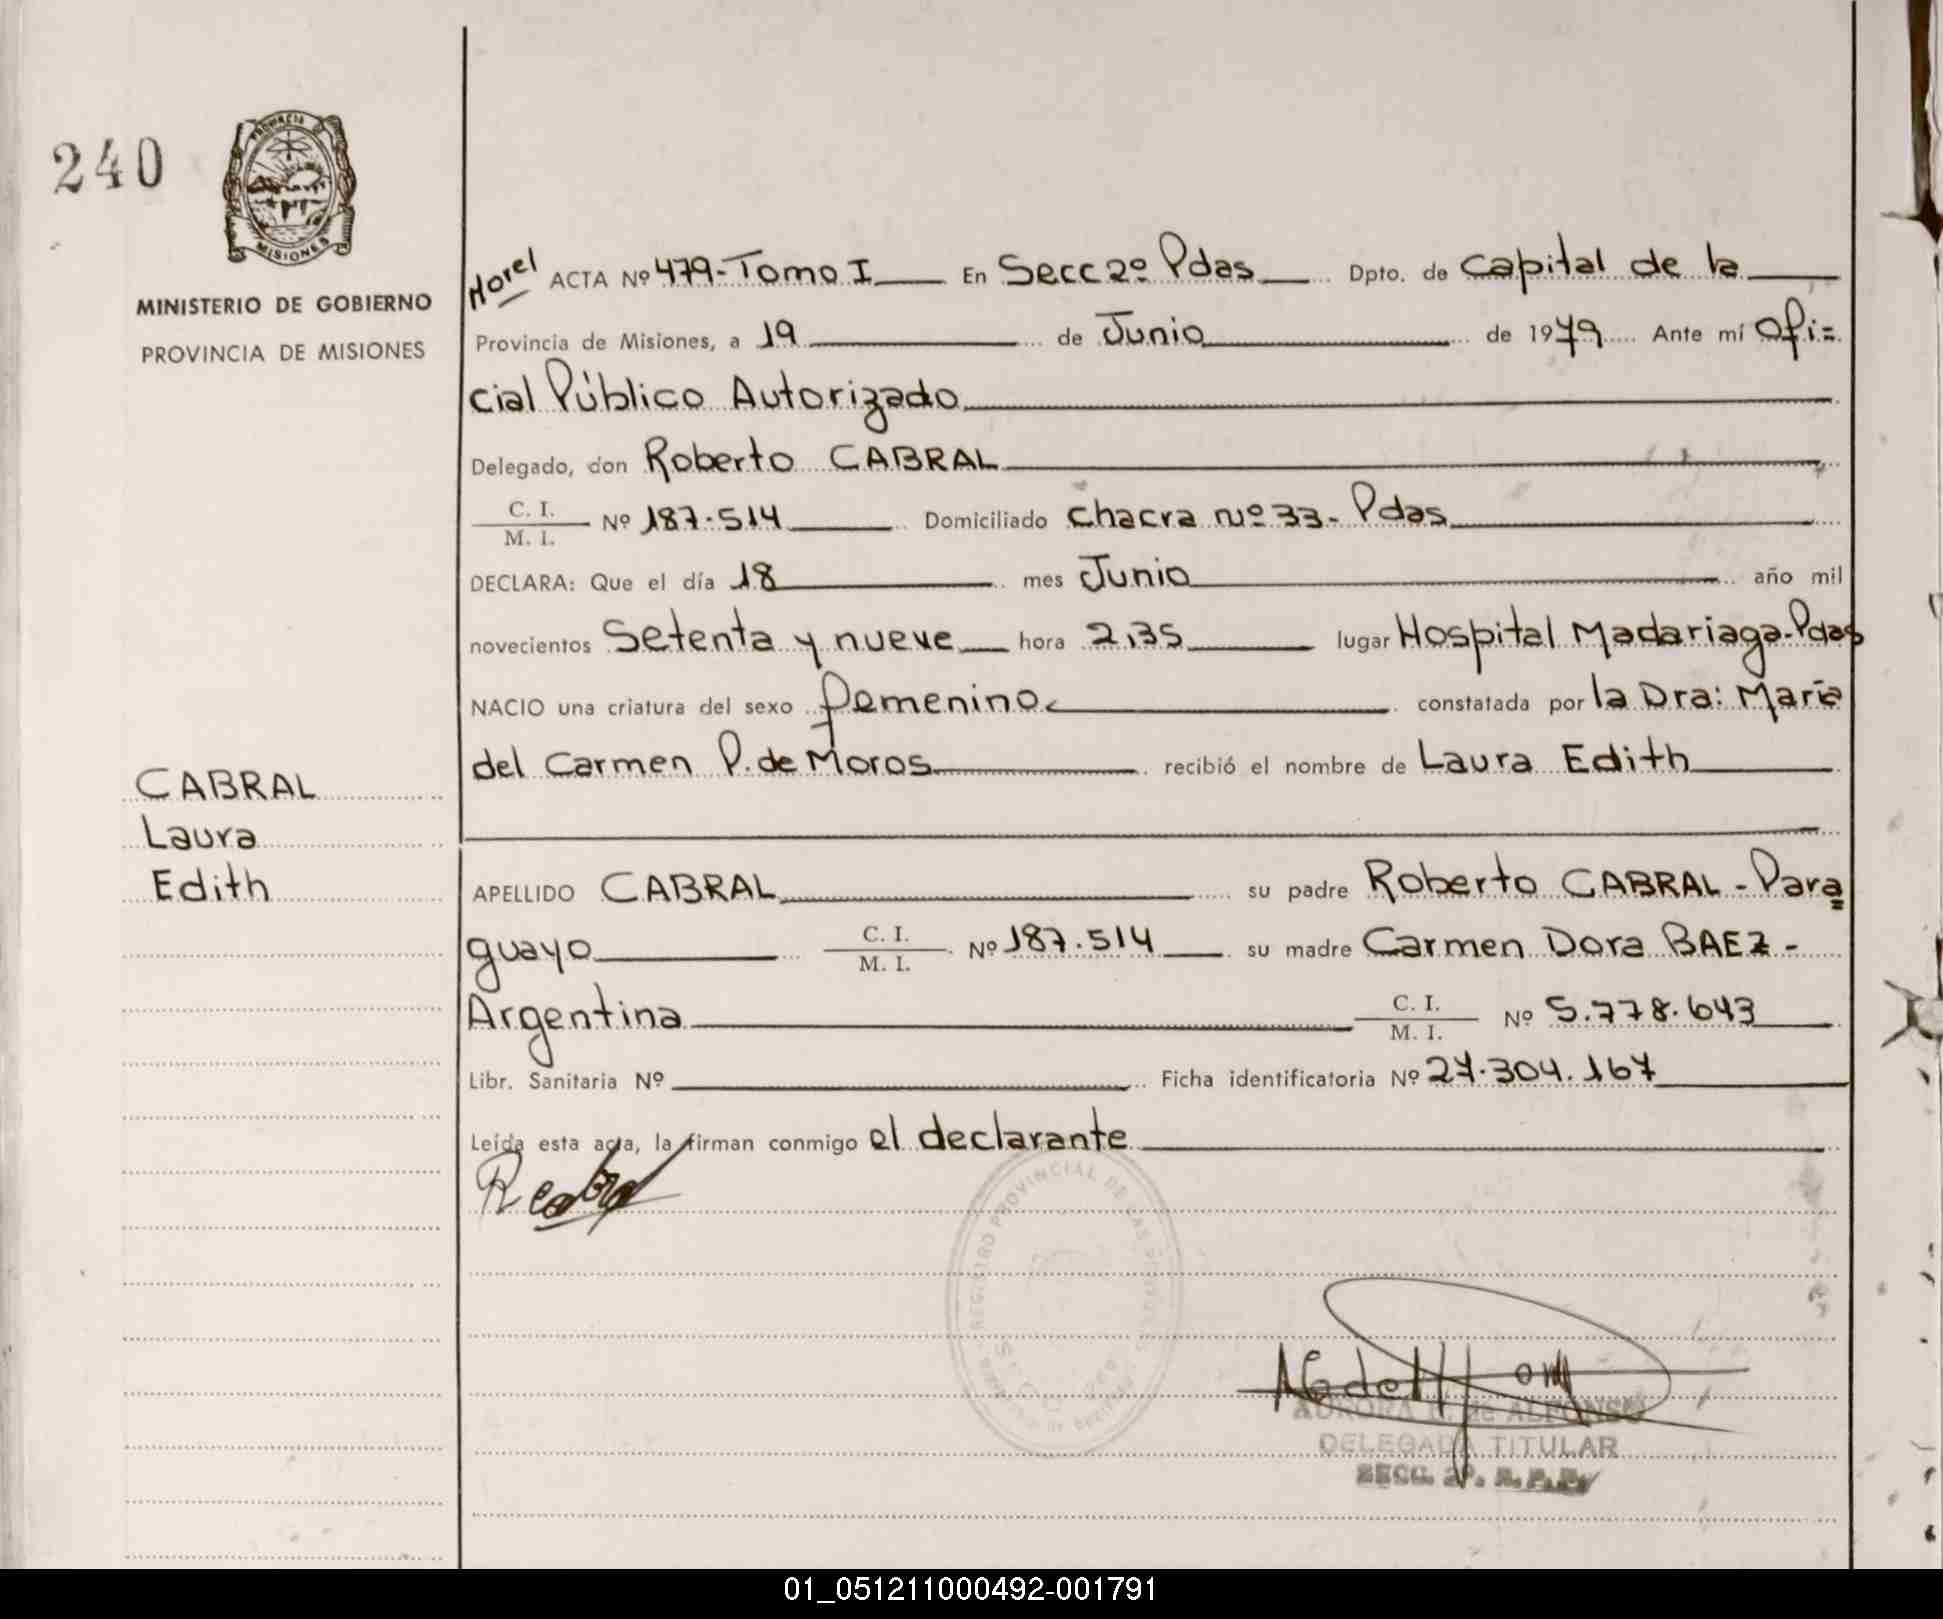 240
PROVINCIA DE
MISIONES
MINISTERIO DE GOBIERNO
PROVINCIA DE MISIONES
ACTA Nº 479-Tomo I En Secc 2º Pdas Dpto. de Capital de la
Provincia de Misiones, a 19 de Junio de 1979 Ante mí Ofi=
cial Público Autorizado
Delegado, don Roberto CABRAL
C. I.
M. I.
Nº 187.514 Domiciliado Chacra nº 33- Pdas
DECLARA: Que el día 18 mes Junio año mil
novecientos Setenta y nueve hora 2,35 lugar Hospital Madariaga-Pdas
NACIO una criatura del sexo femenino constatada por la Dra: María
del Carmen P. de Moros recibió el nombre de Laura Edith
CABRAL
Laura
Edith
APELLIDO CABRAL su padre Roberto CABRAL - Para
guayo C. I. M. I. Nº 187.514 su madre Carmen Dora BAEZ -
Argentina C. I. M. I. Nº 5.778.643
Libr. Sanitaria Nº Ficha identificatoria Nº 27.304.167
Leída esta acta, la firman conmigo el declarante
REGISTRO PROVINCIAL DE LAS
AURORA de ALFONSO
DELEGADA TITULAR
SECC. 2º. R. P. P.
01_051211000492-001791